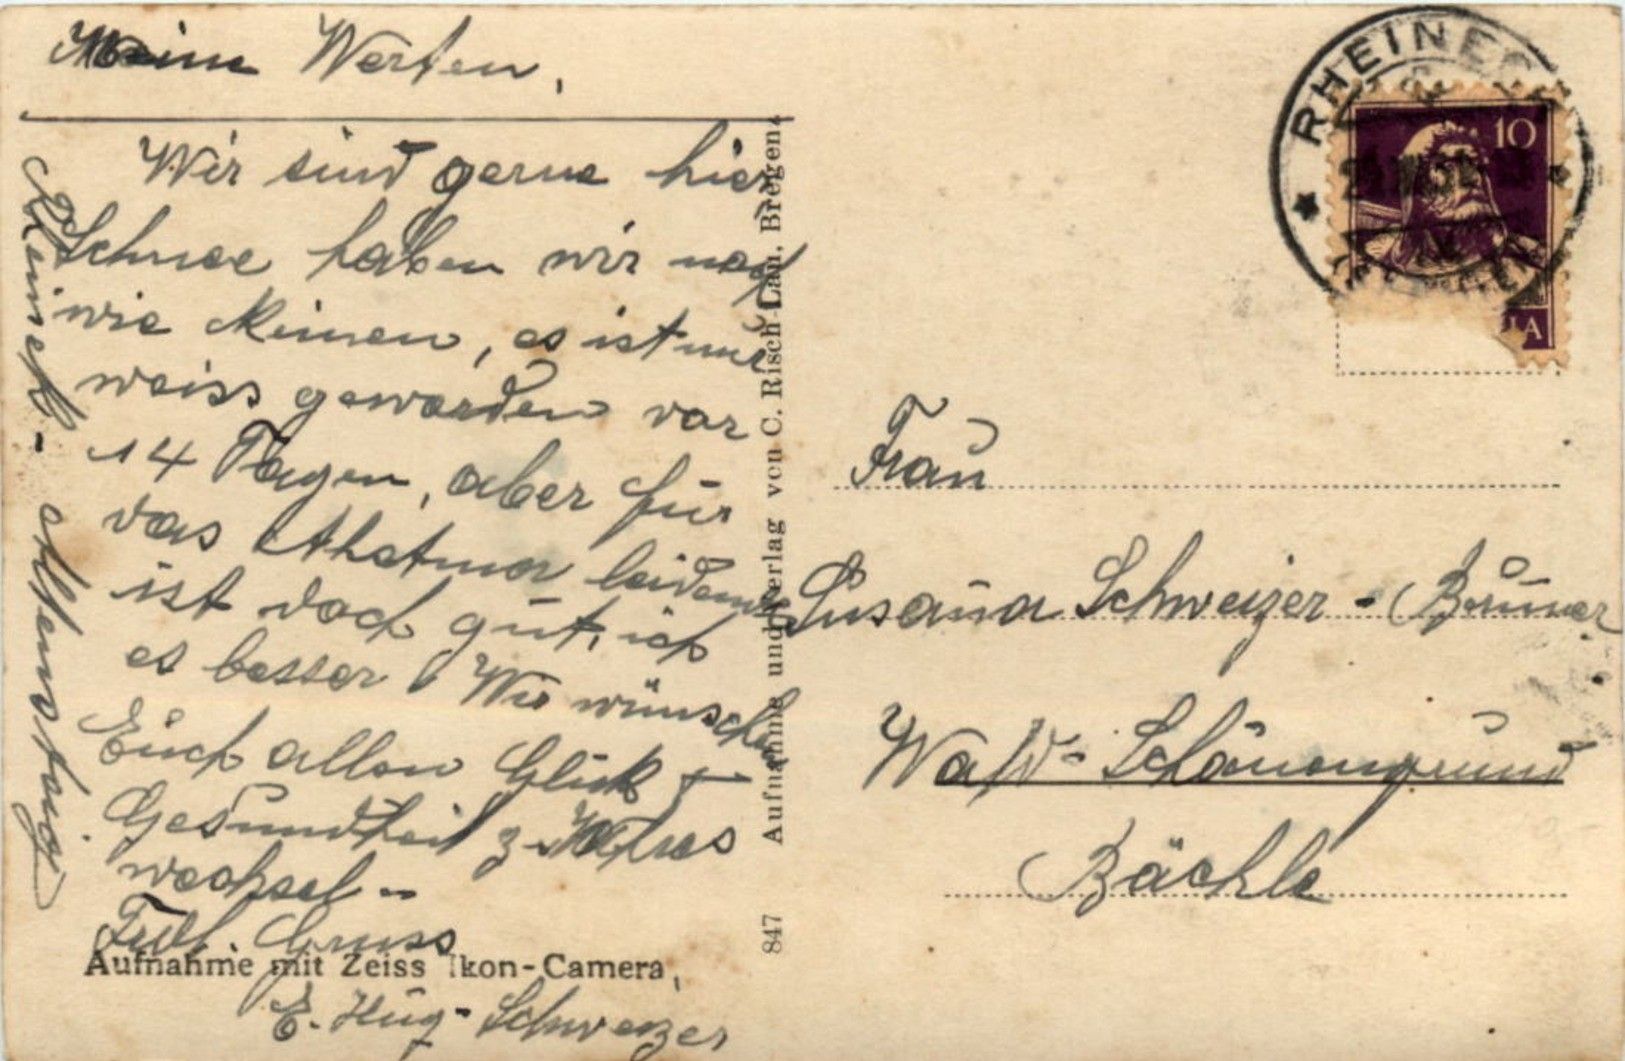 Meine Werten,
Wir sind gerne hier
Schnee haben wir noch
wie keinen, es ist nur
weiss geworden vor
14 Tagen, aber für
das Athetmar leidende
ist doch gut, ich
es besser. Wir wünschen
Euch allen Glück +
Gesundheit z. Jahres
wechsel -
Frdl. Gruss
E. Hug-Schweizer
Rheineck- Altenstaig
Aufnahme mit Zeiss Ikon-Camera
847 Aufnahme und Verlag von C. Risch-Lau, Bregenz
RHEINECK
10
Frau
Susana Schweizer - Brunner
Wald-Schönengrund
Bächle